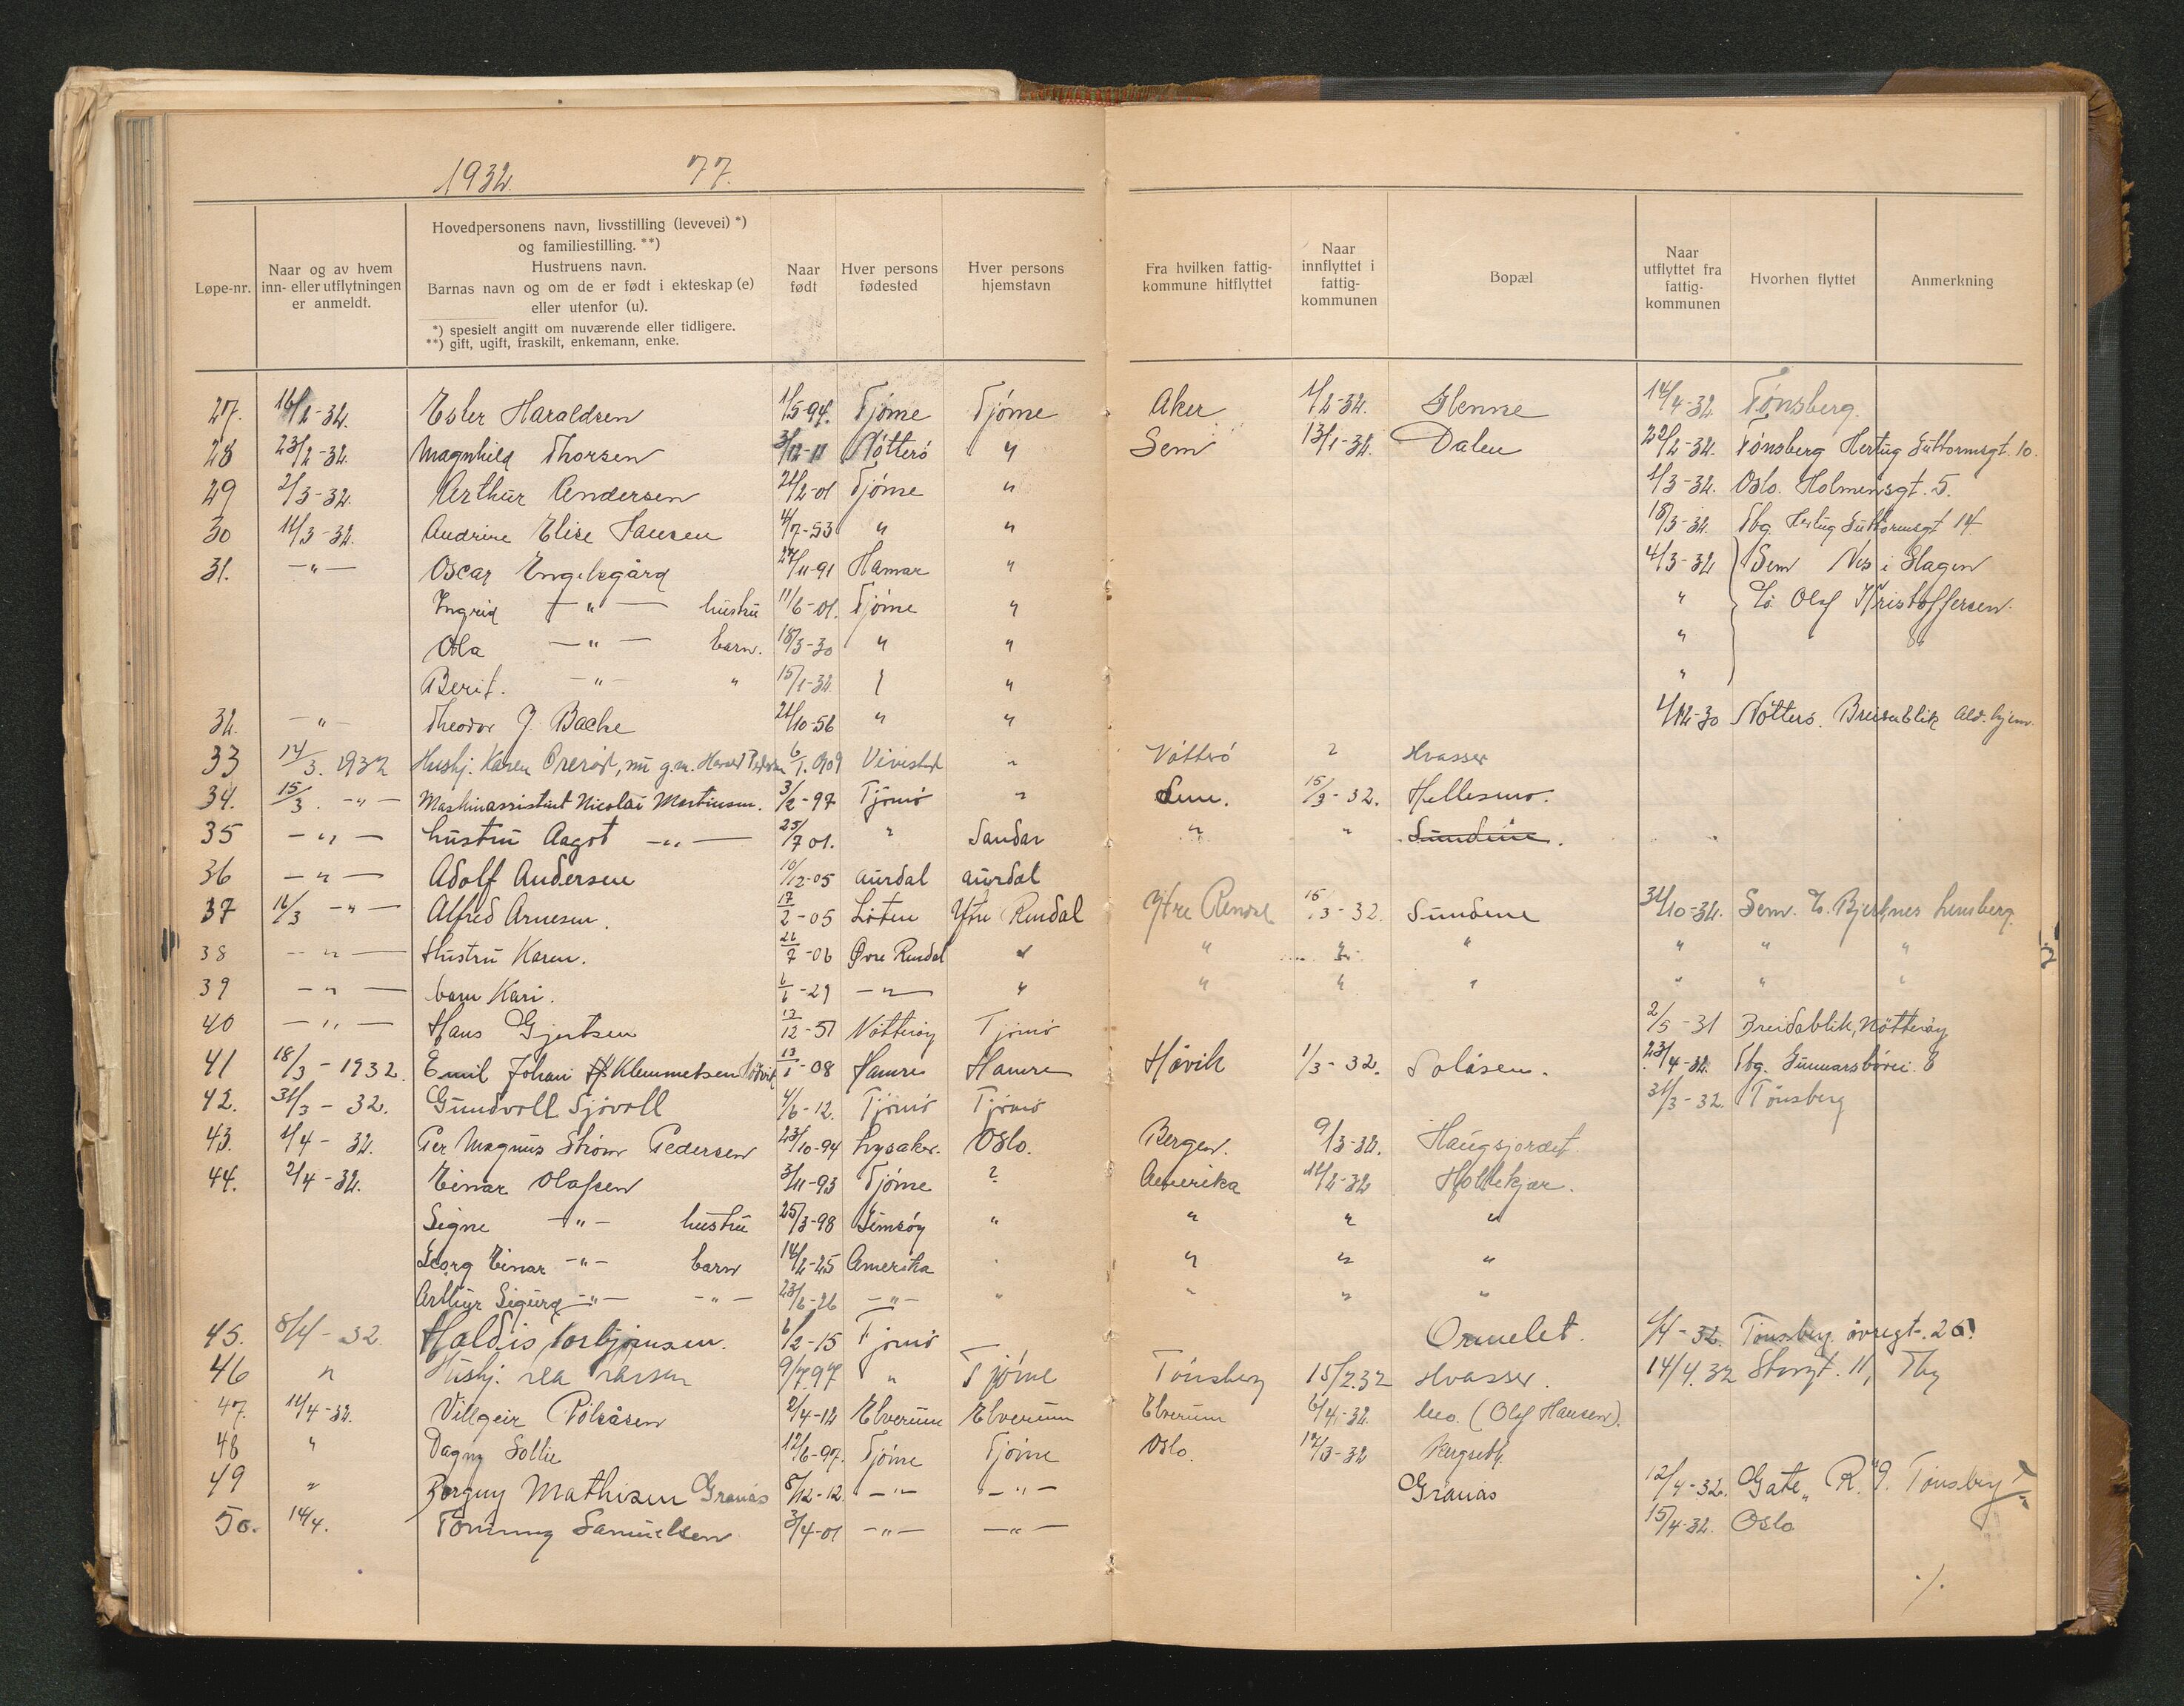 1932. 77.
Løpe-nr.
Naar og av hvem inn- eller utflytningen er anmeldt.
Hovedpersonens navn, livsstilling (levevei) *)
og familiestilling. **)
Hustruens navn.
Barnas navn og om de er født i ekteskap (e)
eller utenfor (u).
*) spesielt angitt om nuværende eller tidligere.
**) gift, ugift, fraskilt, enkemann, enke.
Naar født
Hver persons fødested
Hver persons hjemstavn
Fra hvilken fattigkommune hitflyttet
Naar innflyttet i fattigkommunen
Bopæl
Naar utflyttet fra fattigkommunen
Hvorhen flyttet
Anmerkning
27. 16/2-32. Ester Haraldsen 1/5-94. Tjöme Tjöme Aker 1/2-32. Glenne 14/4-32 Tønsberg.
28 23/2-32. Magnhild Thorsen 3/12-11 Nötterö " Sem 13/1-32. Dalen 22/2-32. Tønsberg Hertug Guttormsgt. 10.
29 2/3-32. Arthur Andersen 21/2-01 Tjöme " 1/3-32. Oslo. Holmensgt. 5.
30 11/3-32. Andrine Elise Hansen 4/7-53 " " 18/3-32. Tbg. Hertug Guttormsgt 14.
31. -"- Oscar Engelsgård 27/11-91 Hamar " 4/3-32 Sem Nes i Slagen
Ingrid -"- hustru 11/6-01. Tjöme " " Olaf Kristoffersen.
Ola -"- barn. 18/3-30 " " "
Berit. -"- " 15/1-32. " "
32. -"- Theodor J. Backe 21/10-56 " " 1/12-30 Nötterö. Breidablik Ald. hjem
33 14/3. 1932 Hushj. Karen Örerød, nu g.m. Harald Pedersen 6/1. 1909 Vivestad " Nötterö ? Hvasser
34. 15/3. -"- Maskinassistent Nicolai Martinsen. 3/2-97 Tjömö " Sem. 15/3-32. Hellesmo.
35 -"- hustru Aagot -"- 25/7 01. " Sandar " " Sundene.
36 -"- Adolf Andersen 10/12-05 Aurdal Aurdal
37 16/3 -"- Alfred Arnesen. 17/2-05 Löten Ytre Rendal Ytre Rendal 15/3-32. Sundene 31/10-32. Sem.
38 -"- Hustru Karen. 26/7-06 Øvre Rendal " " " " " " "
39 -"- barn Kari. 6/1-29 -"- " " " " " " "
40 -"- Hans Gjertsen 13/12-57 Nötteröy Tjömö 2/5-31 Breidablik, Nötteröy
41 18/3-1932. Emil Johan Klemmetsen 13/1-08 Hamre Hamre Håvik 1/3-32. Solåsen. 23/4-32. Tbg. Gunnarsbövei. 8
42. 31/3-32. Gundvoll Sjövoll 4/6-12. Tjömö Tjömö 31/3-32. Tönsberg
43. 1/4-32. Per Magnus Ström Pedersen 23/10-94 Lysaker. Oslo. Bergen. 9/3-32. Haugsjordet.
44. 2/4-32. Einar Olafsen 3/11-93 Tjöme ? Amerika 11/2-32 Holtekjær.
Signe -"- hustru 25/3-98 Gimsöy " " " "
Georg Einar -"- barn 14/2-25 Amerika " " " "
Arthur Sigurd -"- -"- 23/6-26 -"- " " " "
45. 8/4-32. Haldis Torbjörnsen. 6/2-15 Tjömö Ormelet. 4/4-32 Tönsberg övregt. 26.
46 " Hushj. Larsen 9/7.97 " Tjöme Tönsberg 15/2.32 Hvasser. 14/4.32 Storgt. 11, Tbg
47. 11/4-32. Villgeir Pölsåsen 2/4-12 Elverum Elverum Elverum 6/4-32. Mo. (Olaf Hansen).
48 " Dagny Sollie 12/6-97. Tjöme Tjöme Oslo. 17/3-32 Bergseth.
49 " Borguy Mathisen Granås 8/12-12. -"- -"- Granås 12/4-32. Gate "R" 9. Tönsberg
50. 14/4. Tommy Samuelsen 3/4-01 -"- -"- 15/4-32. Oslo
./.